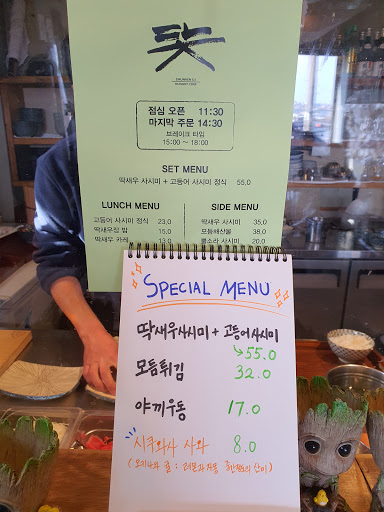 닻
점심 오픈 11:30
마지막 주문 14:30
브레이크 타임
15:00 ~ 18:00
SET MENU
딱새우 사시미 + 고등어 사시미 정식 55.0
LUNCH MENU
고등어 사시미 정식 23.0
딱새우장 밥 15.0
딱새우 카레 13.0
SIDE MENU
딱새우 사시미 35.0
모듬해산물 38.0
뿔소라 사시미 20.0
SPECIAL MENU
딱새우사시미 + 고등어사시미
↳55.0
모듬튀김 32.0
야끼우동 17.0
시쿠와사 사와 8.0